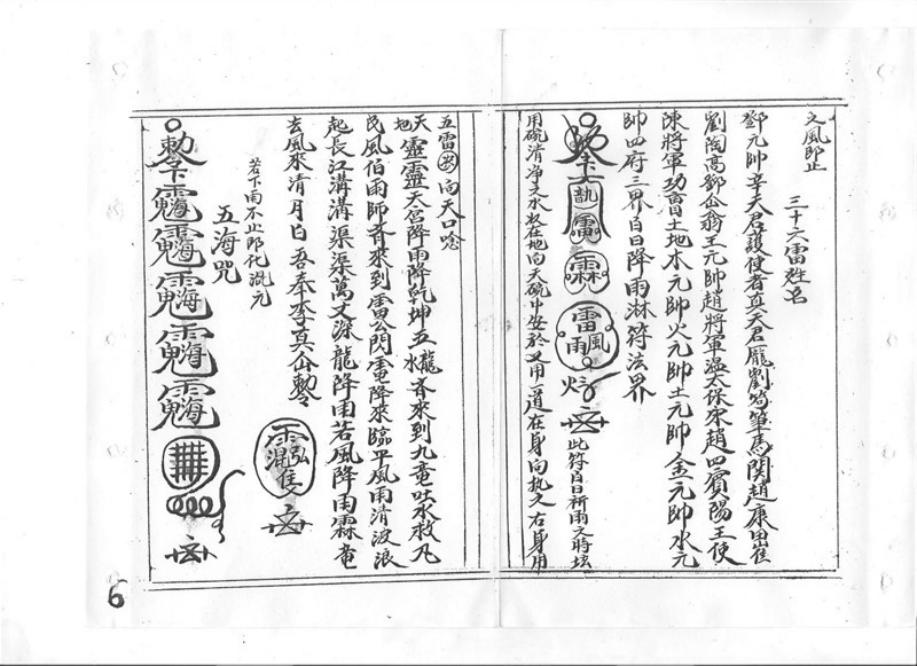 文風即止
三十六雷姓名
鄧元帥辛天君護使者真天君龐劉苟畢馬関趙康田崔
劉陶高鄧仚翁王元帥趙將軍温太保宋趙四賓陽王使
陳將軍功曹土地木元帥火元帥土元帥金元帥水元
帥四府三界白日降雨淋符法界
此符白日祈雨之時坛
用硫清净之水放在地向天硫中安於又用一道在身向执之右身用
五雷向天口唸
天地靈靈天官降雨降乾坤五龍水斉來到九竜吐水救凡
民風伯雨師斉來到雷公閃電降來臨平風雨清波浪
起長江溝溝渠渠萬丈深龍降雨若風降雨霖竜
去風來清月白吾奉李真仚勅令
若下雨不止即化混元
五海咒
6